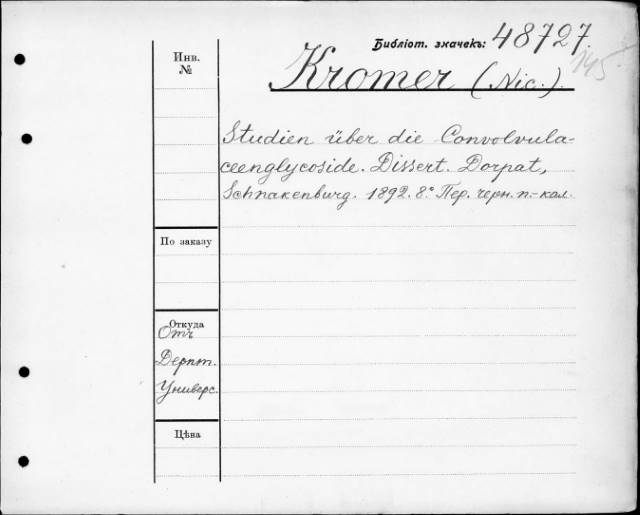 Библіот. значекъ: 48727.
145.
Инв.
№
Kromer (Nic.).
Studien über die Convolvula-
ceenglycoside. Dissert. Dorpat,
Schnakenburg. 1892. 8° Пер. черн. п.-кал.
По заказу
Откуда
Отъ
Дерпт.
Универс.
Цѣна